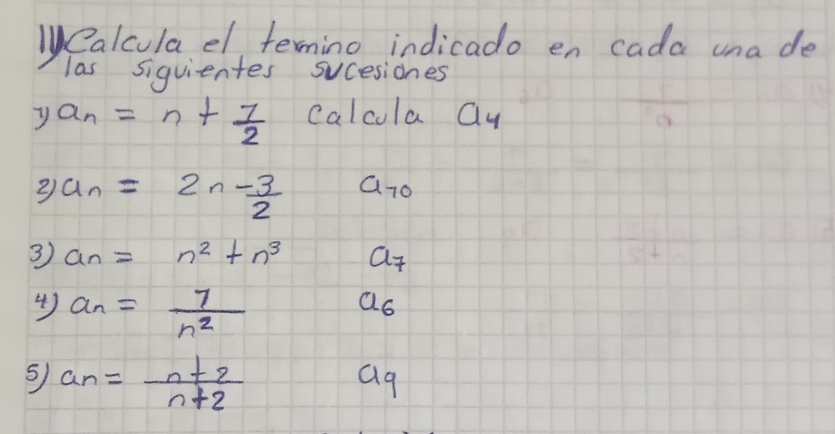 11) Calcula el termino indicado en cada una de
las siguientes sucesiones
1) an = n + 1/2 calcula a4
2) an = 2n - 3/2 a10
3) an = n² + n³ a7
4) an = 1/n² a6
5) an = n+2/n+2 a9